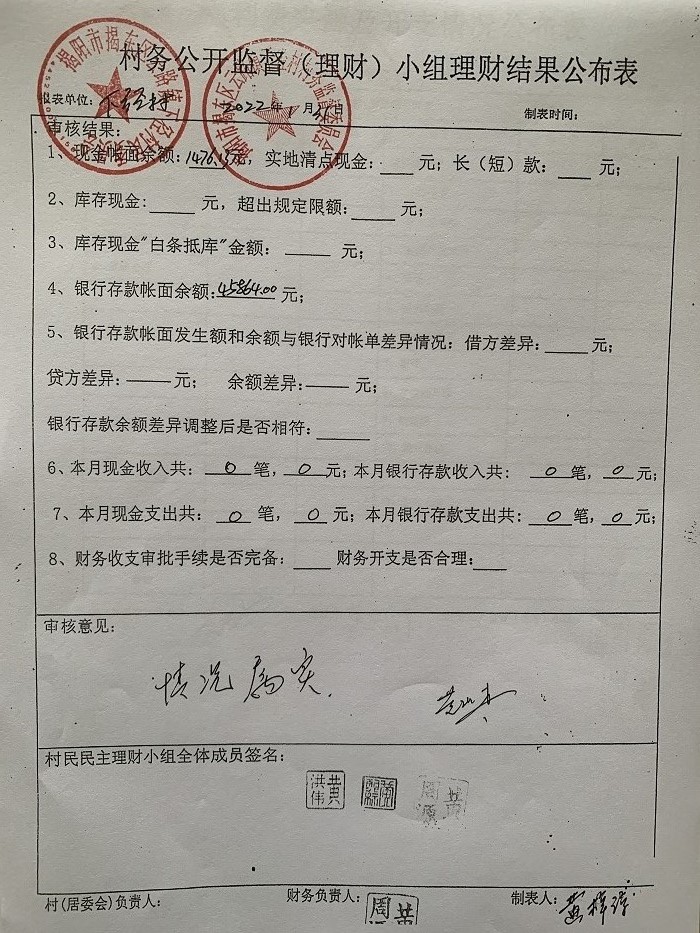 村务公开监督（理财）小组理财结果公布表
报表单位: 下径村 2022年1月31日 制表时间:
审核结果:
1、现金帐面余额:1476.15元, 实地清点现金:___元; 长（短）款:___元;
2、库存现金:____元, 超出规定限额:____元;
3、库存现金"白条抵库"金额: ____元;
4、银行存款帐面余额:45864.00元;
5、银行存款帐面发生额和余额与银行对帐单差异情况: 借方差异:____元;
贷方差异:——元; 余额差异:——元;
银行存款余额差异调整后是否相符:_____
6、本月现金收入共: 0笔, 0元; 本月银行存款收入共: 0笔, 0元;
7、本月现金支出共: 0笔, 0元; 本月银行存款支出共: 0笔, 0元;
8、财务收支审批手续是否完备:____ 财务开支是否合理:____
审核意见:
情况属实.
村民民主理财小组全体成员签名:
黄洪伟
黄周源
村(居委会)负责人: 财务负责人: 黄周 制表人: